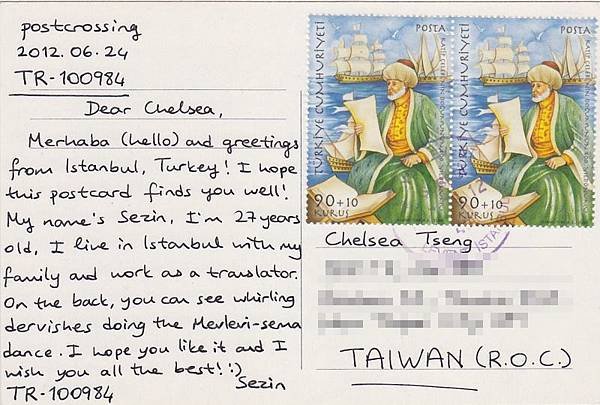 postcrossing
2012.06.24
TR-100984
Dear Chelsea,
Merhaba (hello) and greetings
from Istanbul, Turkey! I hope
this postcard finds you well!
My name's Sezin, I'm 27 years
old, I live in Istanbul with my
family and work as a translator.
On the back, you can see whirling
dervishes doing the Mevlevi-sema
dance. I hope you like it and I
wish you all the best! :)
Sezin
TR-100984
TÜRKİYE CUMHURİYETİ
POSTA
90+10
KURUŞ
TÜRKİYE CUMHURİYETİ
POSTA
90+10
KURUŞ
Chelsea Tseng
TAIWAN (R.O.C.)